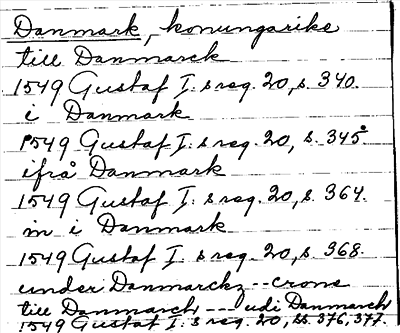 Danmark, konungarike
till Danmarck
1549 Gustaf I: s reg. 20, s. 340.
i Danmark
1549 Gustaf I: s reg. 20, s. 345.
ifrå Danmark
1549 Gustaf I: s reg. 20, s. 364.
in i Danmark
1549 Gustaf I: s reg. 20, s. 368.
under Danmarckz -- crone
till Danmarch --- udi Danmarch
1549 Gustaf I: s reg. 20, ss. 376, 377.